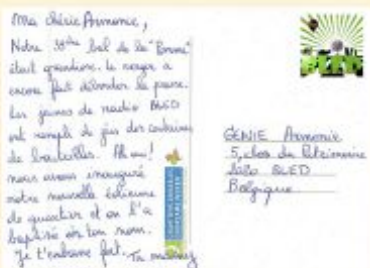 Ma chérie Anmonie,
Notre bal de la "Bromé"
était grandiose. Le verger a
encore fait déborder la presse.
Les jeunes de radio BLED
ont rempli de jus des centaines
de bouteilles. Ah oui !
nous avons inauguré
notre nouvelle éolienne
de quartier et on l'a
baptisée en ton nom.
Je t'embrasse fort. Ta
GENIE Anmonie
5, clos du Patrimoine
BLED
Belgique
BLED